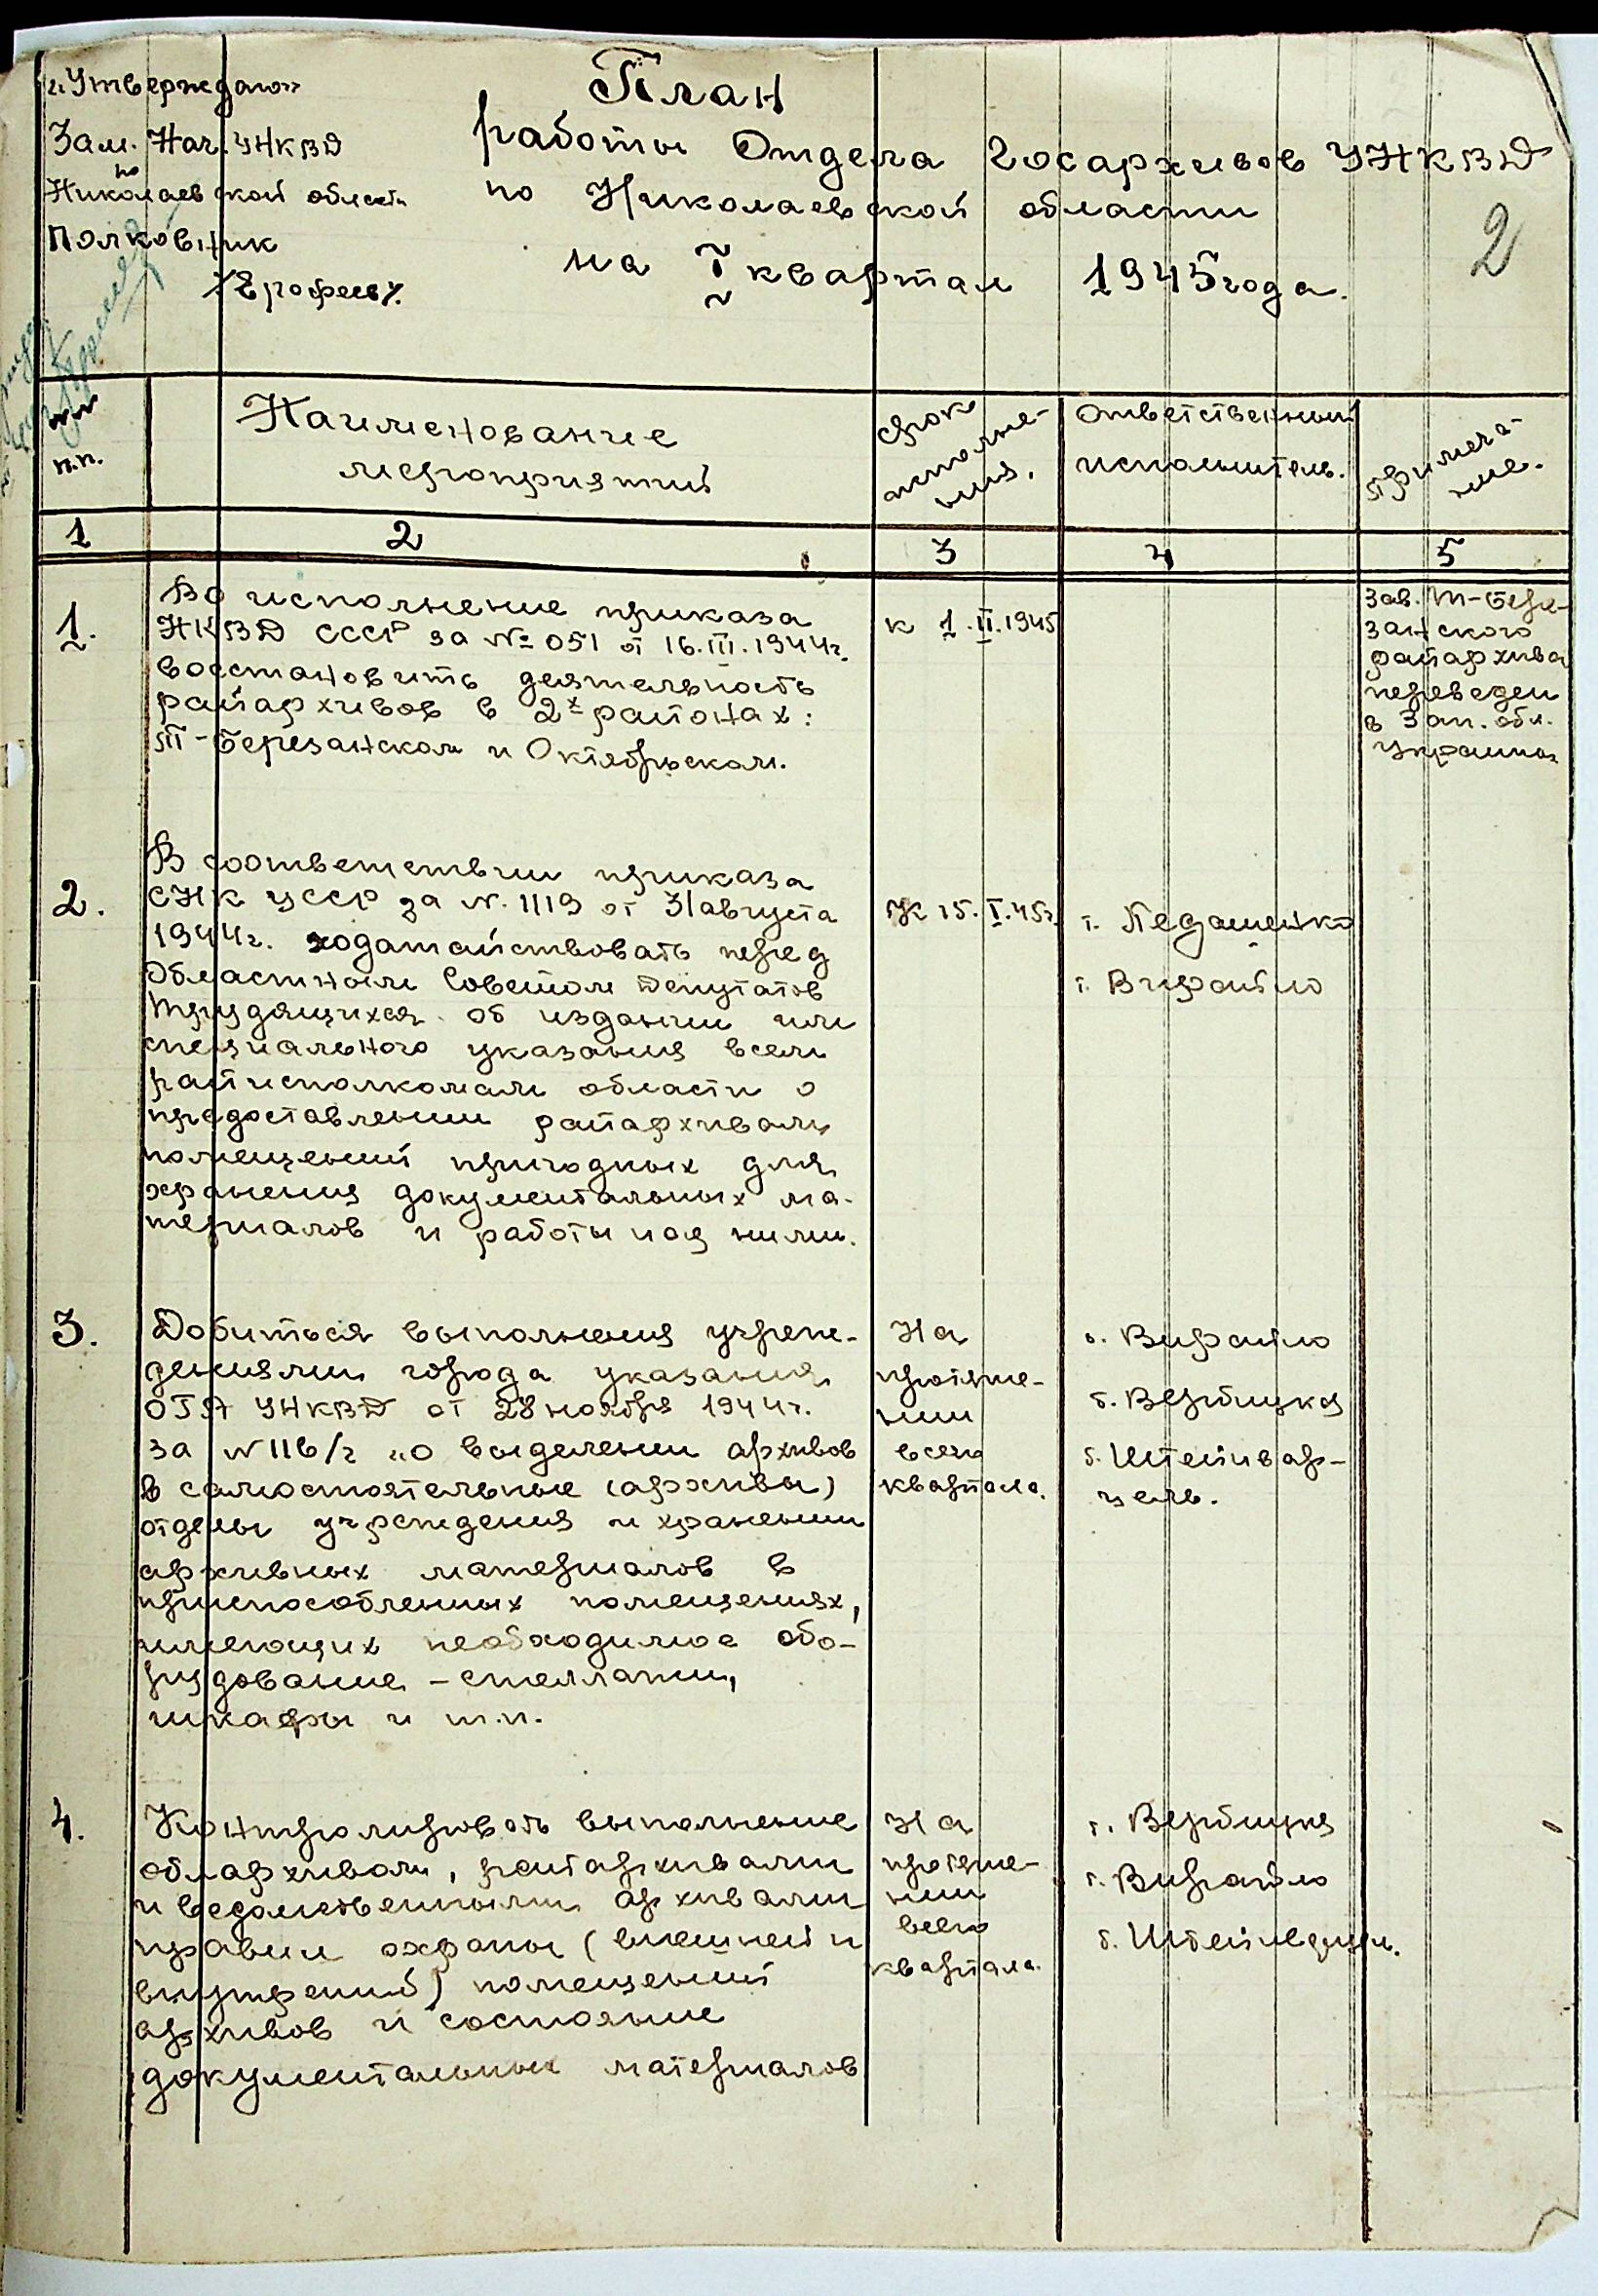 „Утверждаю"
Зам. Нач. УНКВД
по
Николаевской области
Полковник
/Ерофеев/.
План
работы Отдела Госархивов УНКВД
по Николаевской области
на I квартал 1945 года.
2
№№
п.п.
Наименование
мероприятий
срок
исполне-
ния.
ответственный
исполнитель.
примеча-
ние.
1
2
3
4
5
1.
Во исполнение приказа
НКВД СССР за № 051 от 16.III.1944г.
восстановить деятельность
райархивов в 2х районах:
Т-Березанском и Октябрьском.
к 1.II.1945
Зав. Т-Бере-
занского
райархива
переведен
в Зап. обл.
Украины
2.
В соответствии приказа
СНК УССР за N. 1119 от 31 августа
1944г. ходатайствовать перед
Областным Советом Депутатов
Трудящихся об издании им
специального указания всем
райисполкомам области о
предоставлении райархивам
помещений пригодных для
хранения документальных ма-
териалов и работы над ними.
К 15.I.45г.
т. Педашенко
т. Вирайло
3.
Добиться выполнения учреж-
дениями города указания
ОГА УНКВД от 28 ноября 1944г.
за N 116/г „о выделении архивов
в самостоятельные (архивы)
отделы учреждения и хранении
архивных материалов в
приспособленных помещениях,
имеющих необходимое обо-
рудование – стеллажи,
шкафы и т.п.
На
протяже-
нии
всего
квартала.
т. Вирайло
т. Вербицкая
т. Штейнвар-
цель.
4.
Контролировать выполнение
обларх­ивом, райархивами
и ведомственными архивами
правил охраны (внешней и
внутренней) помещений
архивов и состояние
документальных материалов
На
протяже-
нии
всего
квартала.
т. Вербицкая
т. Вирайло